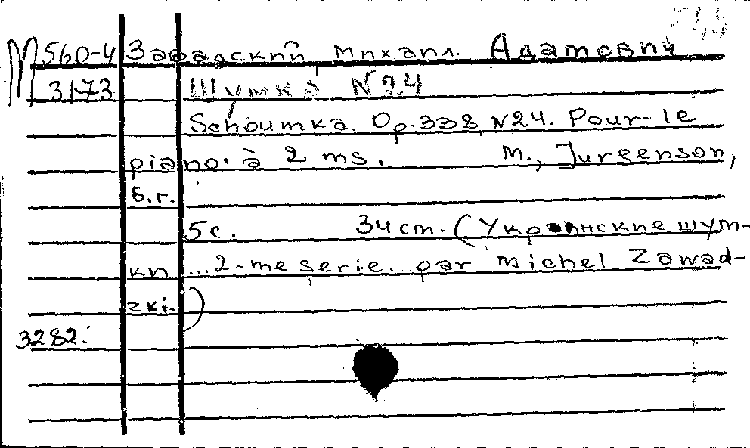 М 560-4 Завадский, Михаил Адамович
3173 Шумка N24
Schoumka. Op.338, N24. Pour le
piano à 2 ms. М., Jurgenson,
б.г.
5с. 34 см. (Украинские шум-
ки ... 2-me serie. par Michel Zawad-
zki.)
3282.